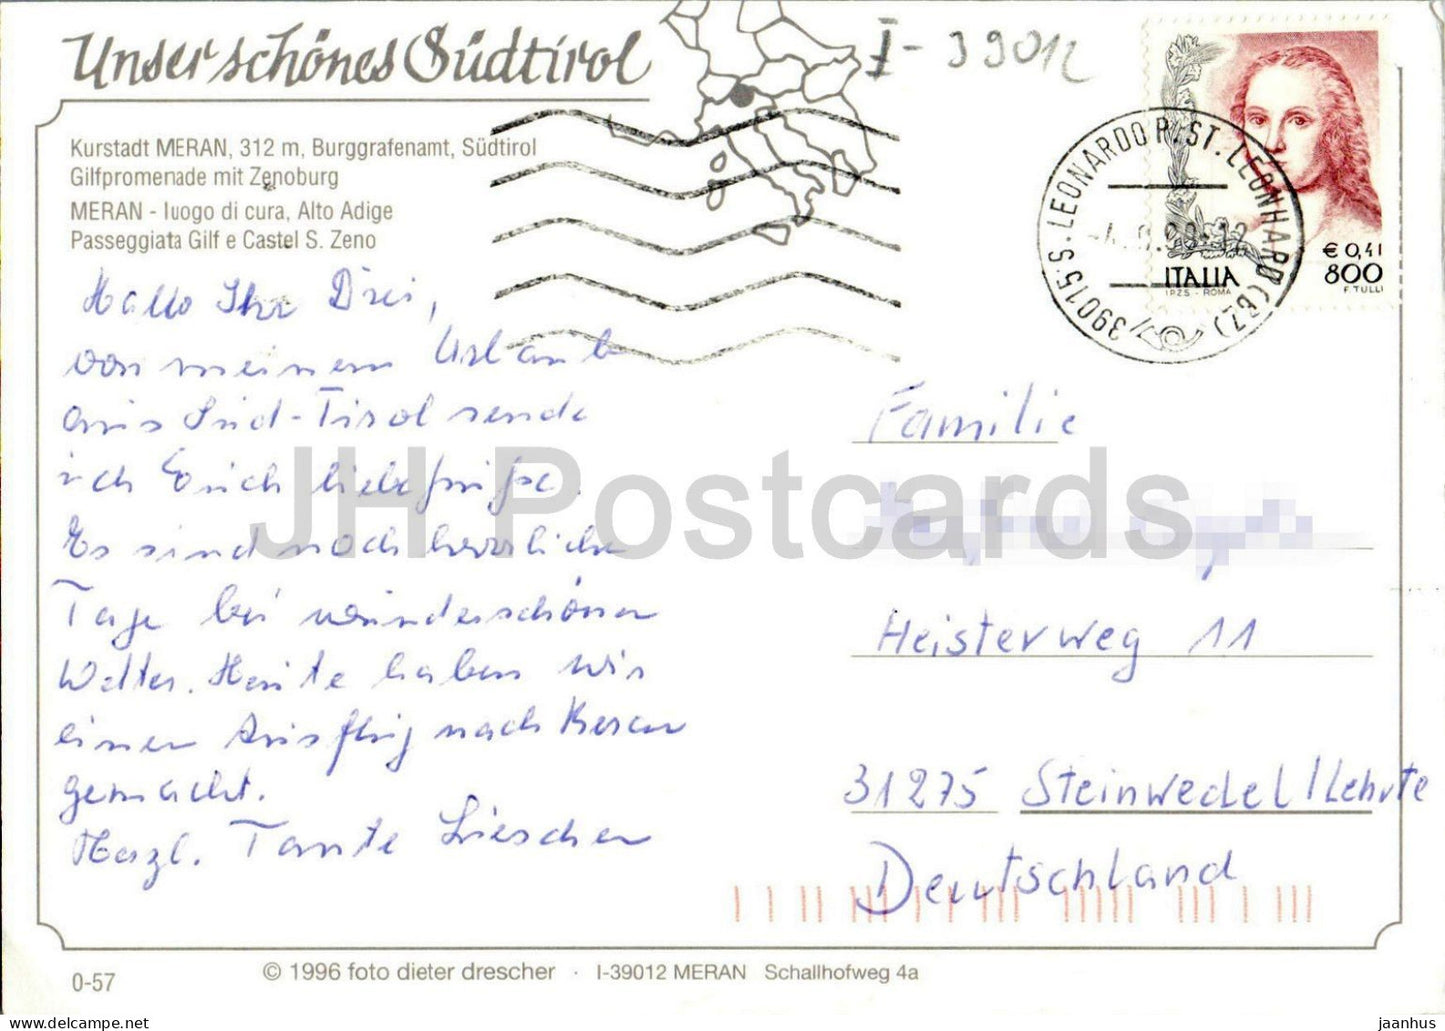 Unser schönes Südtirol
I-39012
Kurstadt MERAN, 312 m, Burggrafenamt, Südtirol
Gilfpromenade mit Zenoburg
MERAN - luogo di cura, Alto Adige
Passeggiata Gilf e Castel S. Zeno
39015 S. LEONARDO P. ST. LEONHARD (BZ)
€ 0,41
ITALIA 800
I.P.Z.S. - ROMA F. TULLI
Hallo Ihr Drei,
von meinem Urlaub
aus Süd-Tirol sende
ich Euch liebe Grüße.
Es sind noch herrliche
Tage bei wunderschönen
Wetter. Heute haben wir
einen Ausflug nach Meran
gemacht.
Herzl. Tante Lieschen
Familie
Heisterweg 11
31275 Steinwedel/Lehrte
Deutschland
JH Postcards
0-57
© 1996 foto dieter drescher · I-39012 MERAN Schallhofweg 4a
delcampe.net
jaanhus